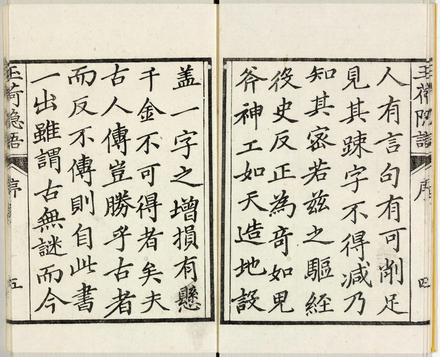 人有言句有可削足
見其踈字不得減乃
知其密若茲之驅經
役史反正為奇如鬼
斧神工如天造地設
玉荷隐語
序
四
蓋一字之增損有懸
千金不可得者矣夫
古人傳豈勝乎古者
而反不傳則自此書
一出雖謂古無謎而今
玉荷隐語
序
五